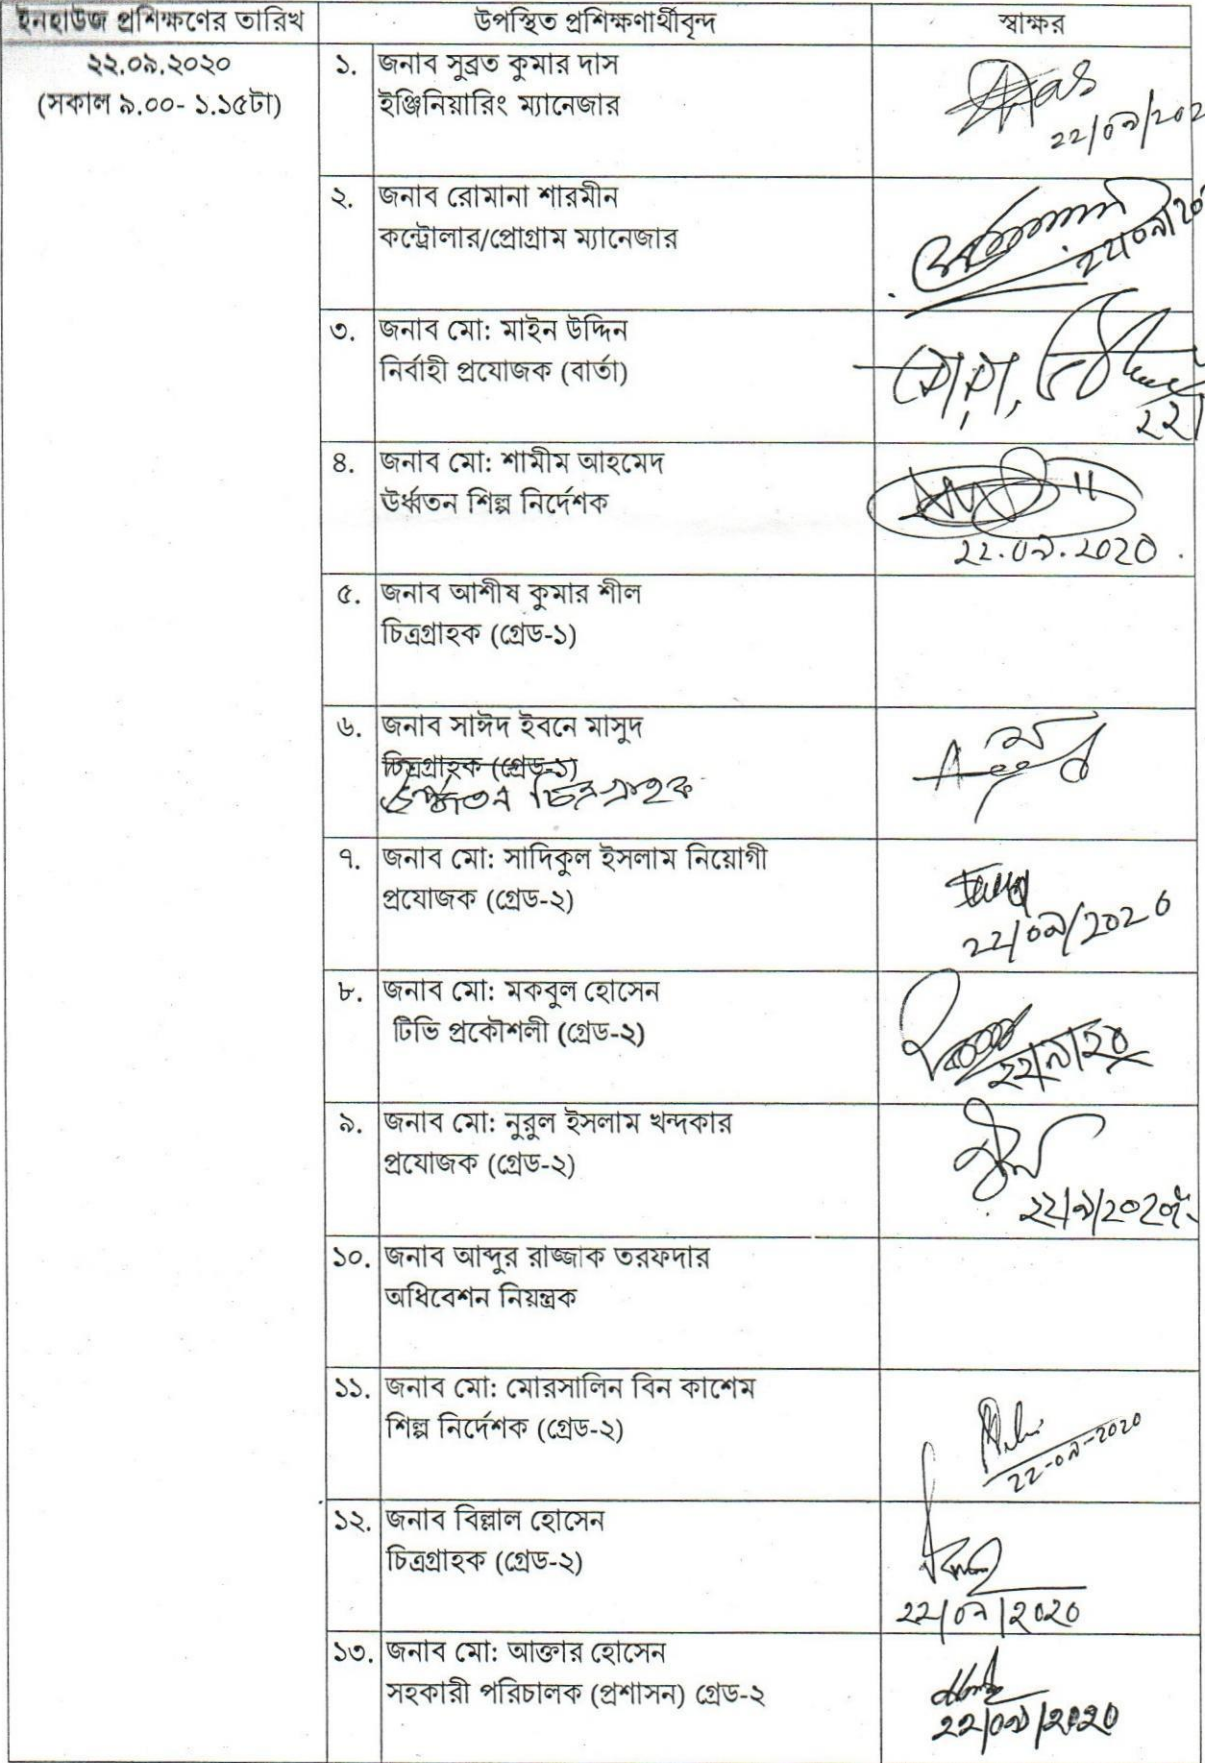 ইনহাউজ প্রশিক্ষণের তারিখ উপস্থিত প্রশিক্ষণার্থীবৃন্দ স্বাক্ষর
২২.০৯.২০২০
(সকাল ৯.০০- ১.১৫টা)
১. জনাব সুব্রত কুমার দাস
ইঞ্জিনিয়ারিং ম্যানেজার
২২/০৯/২০২
২. জনাব রোমানা শারমীন
কন্ট্রোলার/প্রোগ্রাম ম্যানেজার
২২/০৯/২০
৩. জনাব মো: মাইন উদ্দিন
নির্বাহী প্রযোজক (বার্তা)
২২/
৪. জনাব মো: শামীম আহমেদ
ঊর্ধ্বতন শিল্প নির্দেশক
২২.০৯.২০২০.
৫. জনাব আশীষ কুমার শীল
চিত্রগ্রাহক (গ্রেড-১)
৬. জনাব সাঈদ ইবনে মাসুদ
চিত্রগ্রাহক (গ্রেড-১)
ঊর্ধ্বতন চিত্রগ্রাহক
৭. জনাব মো: সাদিকুল ইসলাম নিয়োগী
প্রযোজক (গ্রেড-২)
২২/০৯/২০২০
৮. জনাব মো: মকবুল হোসেন
টিভি প্রকৌশলী (গ্রেড-২)
২২/৯/২০
৯. জনাব মো: নুরুল ইসলাম খন্দকার
প্রযোজক (গ্রেড-২)
২২/৯/২০২০
১০. জনাব আব্দুর রাজ্জাক তরফদার
অধিবেশন নিয়ন্ত্রক
১১. জনাব মো: মোরসালিন বিন কাশেম
শিল্প নির্দেশক (গ্রেড-২)
২২-০৯-২০২০
১২. জনাব বিল্লাল হোসেন
চিত্রগ্রাহক (গ্রেড-২)
২২/০৯/২০২০
১৩. জনাব মো: আক্তার হোসেন
সহকারী পরিচালক (প্রশাসন) গ্রেড-২
২২/০৯/২০২০